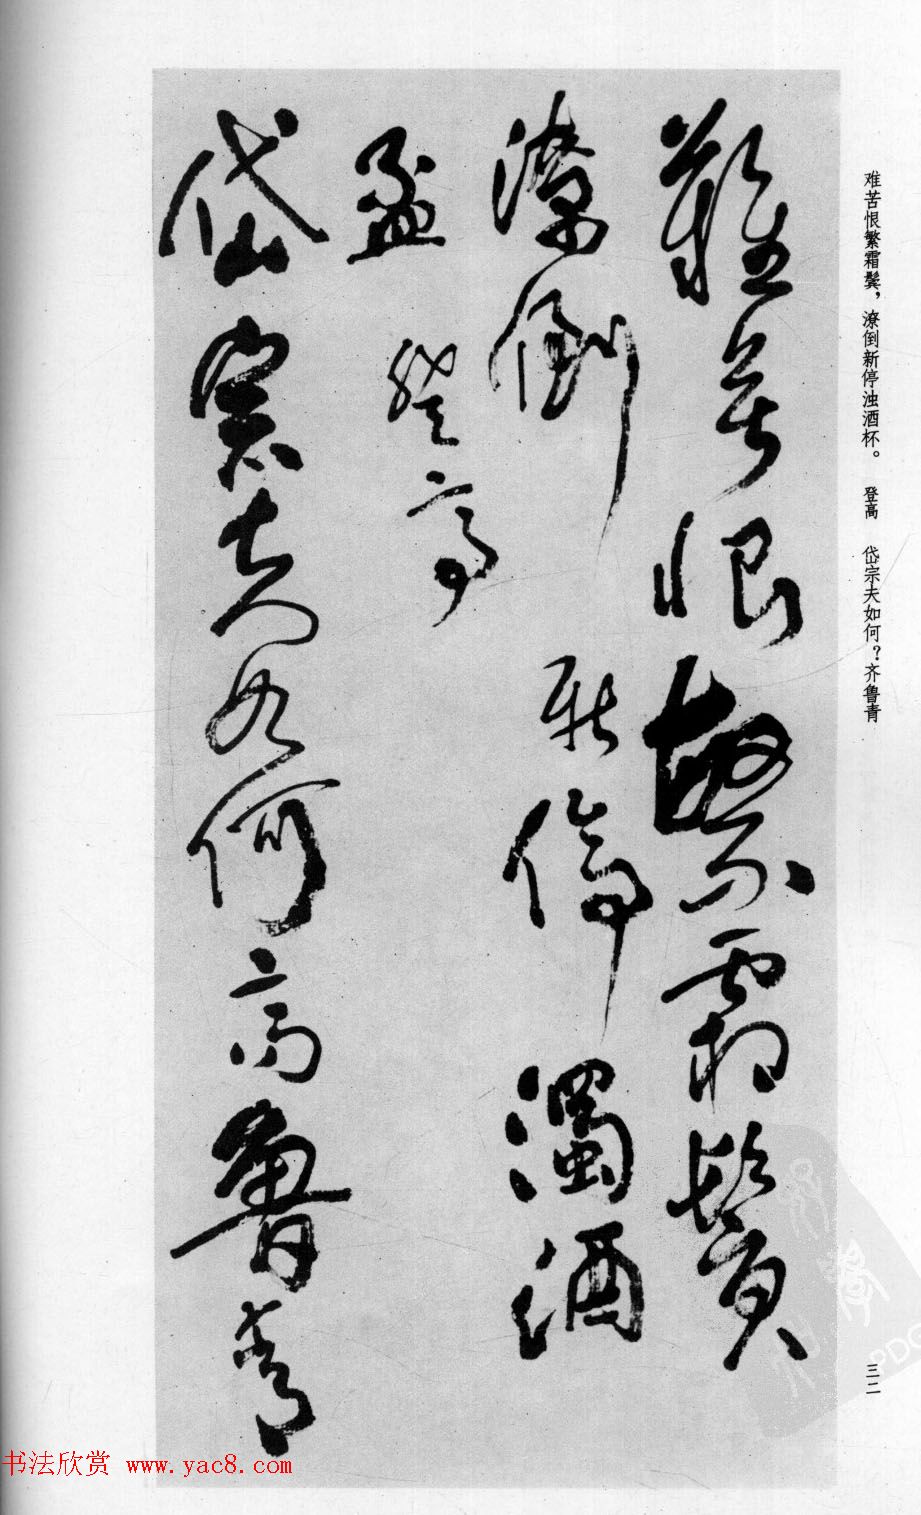 难苦恨繁霜鬓，潦倒新停浊酒杯。 登高 岱宗夫如何？齐鲁青
三二
難苦恨繁霜鬢
潦倒新停濁酒
盃 登高
岱宗夫如何齊魯青
书法欣赏 www.yac8.com